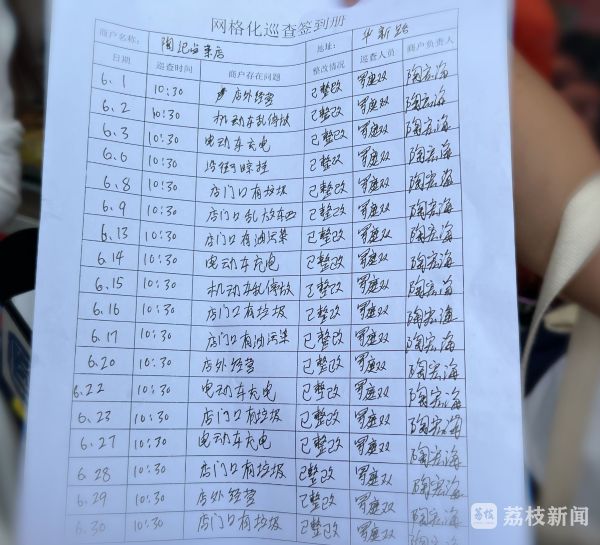 网格化巡查签到册
商户名称: 陶记卤菜店 地址: 华新路
日期 巡查时间 商户存在问题 整改情况 巡查人员 商户负责人
6.1 10:30 店外经营 已整改 陶宏海
6.2 10:30 机动车乱停放 已整改 陶宏海
6.3 10:30 电动车充电 已整改 陶宏海
6.6 10:30 沿街晾挂 已整改 陶宏海
6.8 10:30 店门口有垃圾 已整改 陶宏海
6.9 10:30 店门口乱放东西 已整改 陶宏海
6.13 10:30 店门口有油污染 已整改 陶宏海
6.14 10:30 电动车充电 已整改 陶宏海
6.15 10:30 机动车乱停放 已整改 陶宏海
6.16 10:30 店门口有垃圾 已整改 陶宏海
6.17 10:30 店门口有油污染 已整改 陶宏海
6.20 10:30 店外经营 已整改 陶宏海
6.22 10:30 电动车充电 已整改 陶宏海
6.23 10:30 店门口有垃圾 已整改 陶宏海
6.27 10:30 电动车充电 已整改 陶宏海
6.28 10:30 店门口有垃圾 已整改 陶宏海
6.29 10:30 店外经营 已整改 陶宏海
6.30 10:30 店门口有垃圾 已整改 陶宏海
荔枝 荔枝新闻